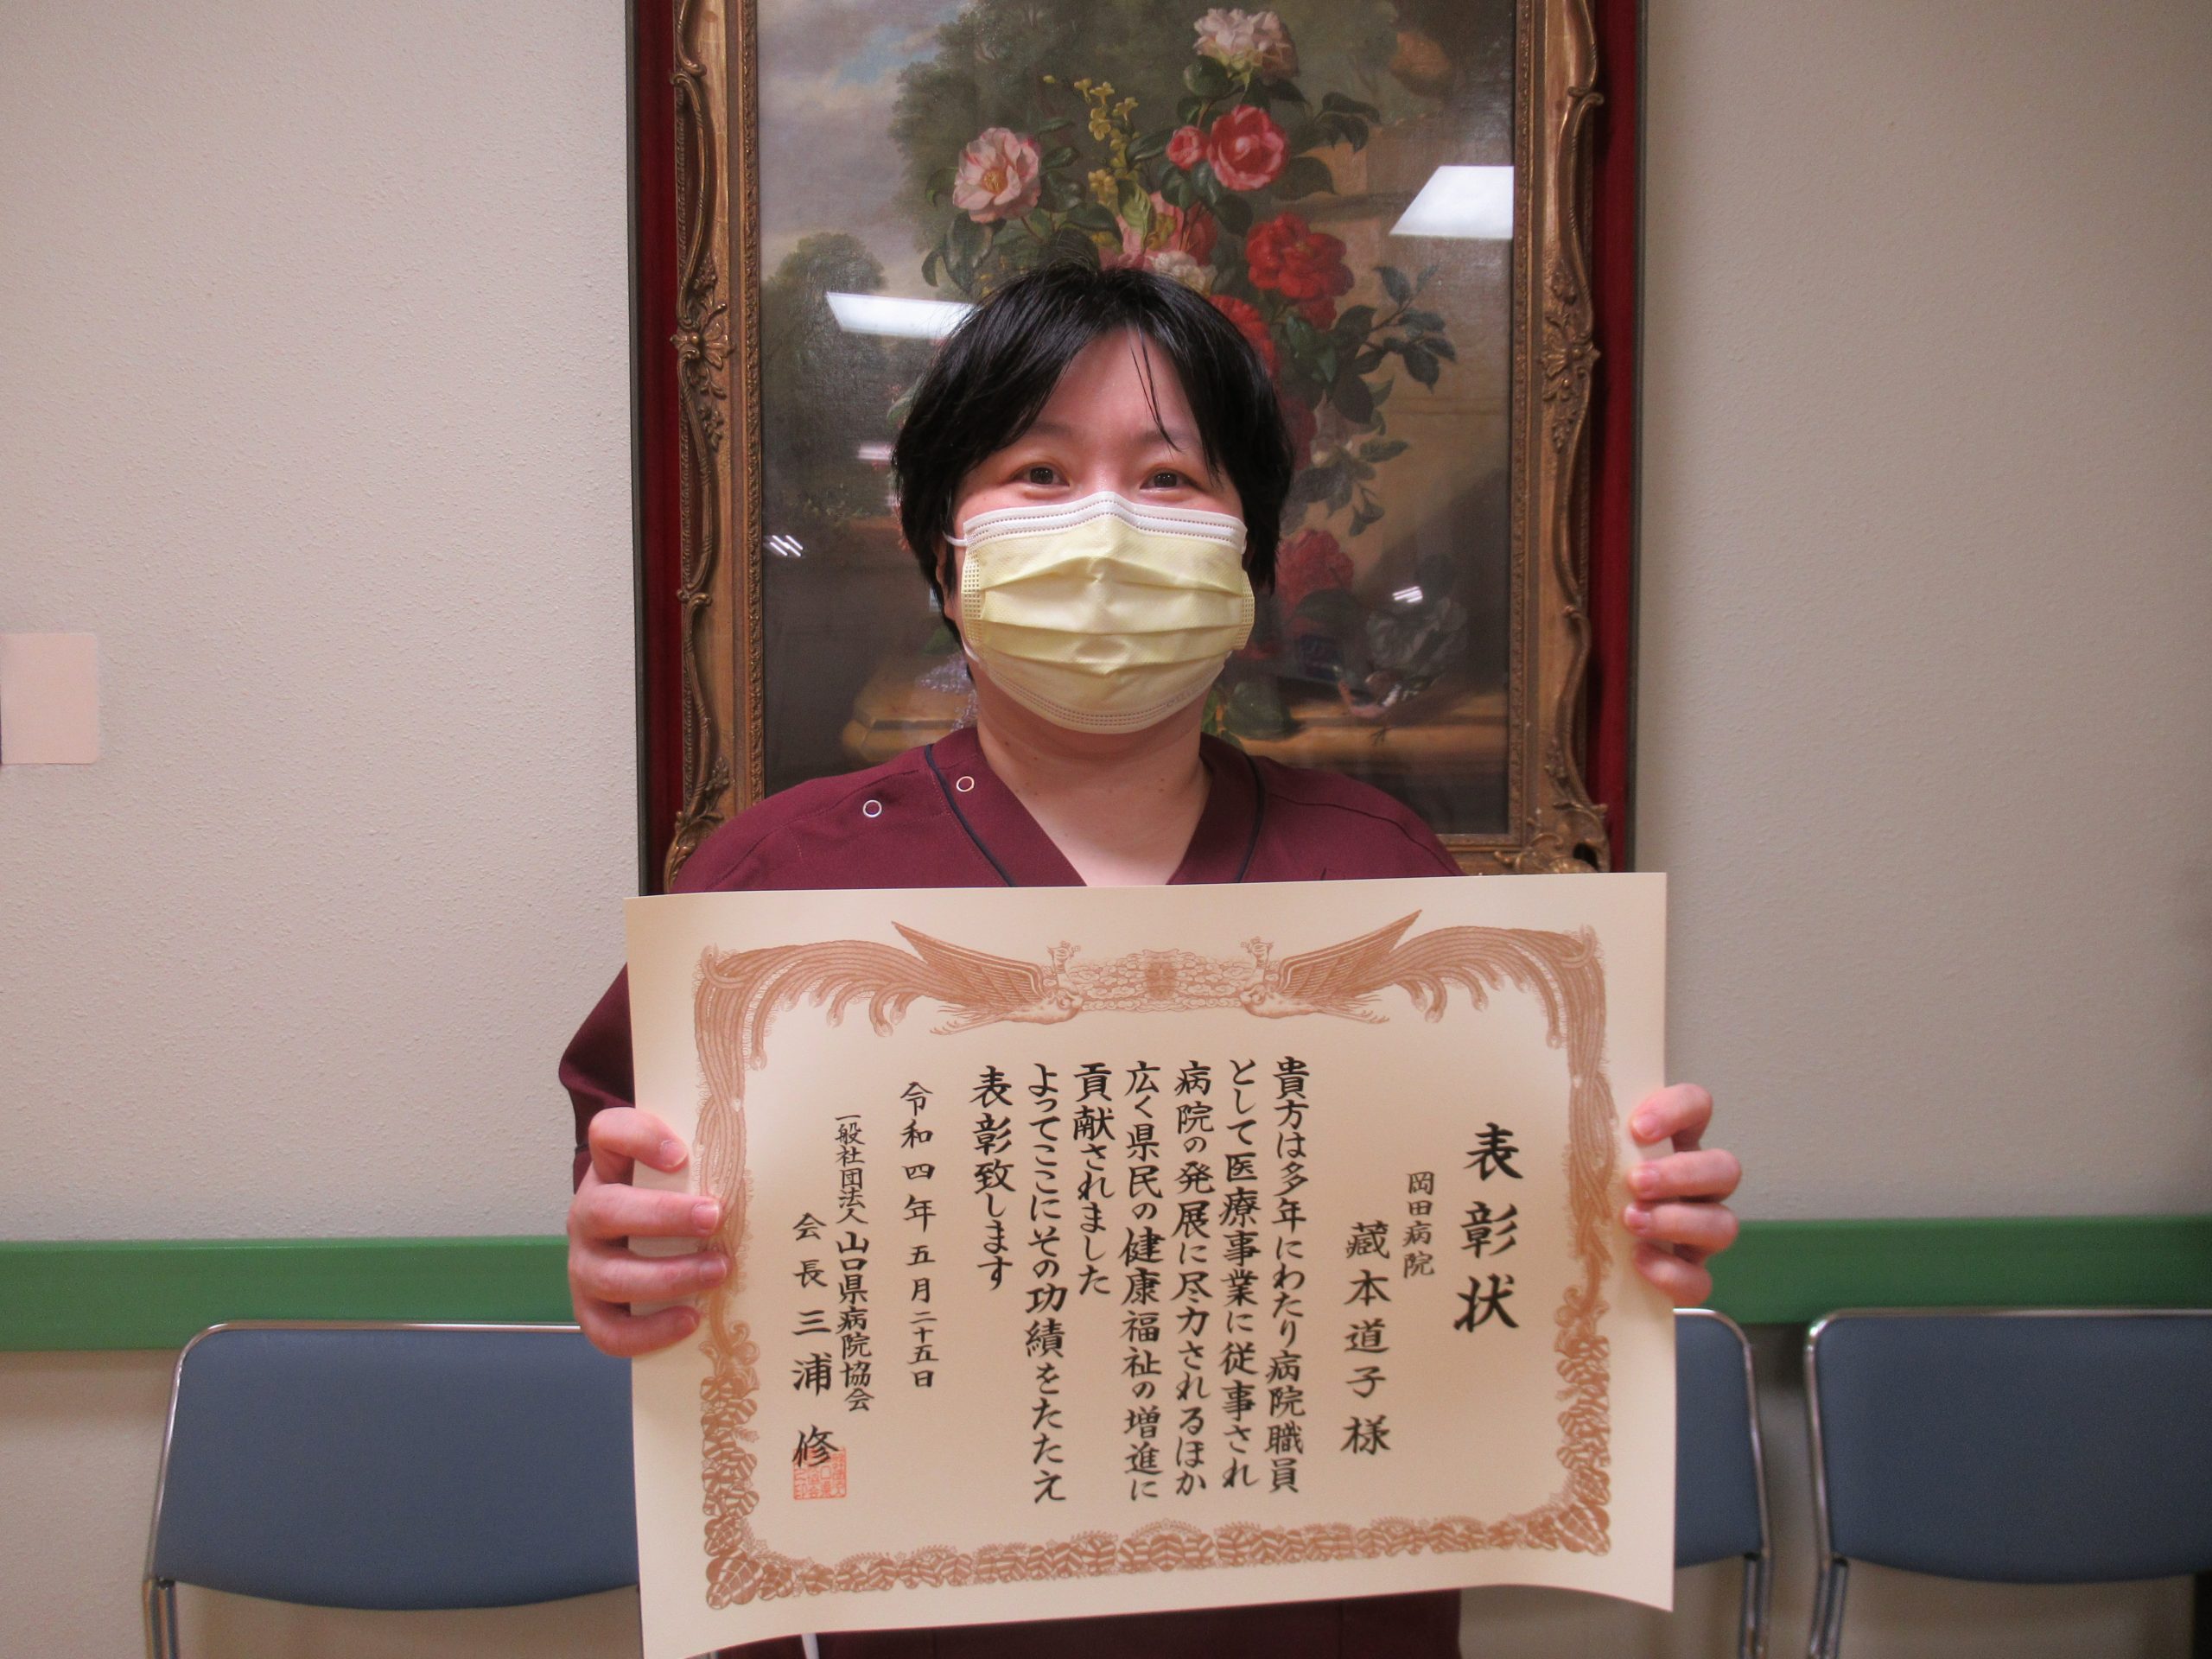 表彰状
岡田病院
藏本道子様
貴方は多年にわたり病院職員
として医療事業に従事され
病院の発展に尽力されるほか
広く県民の健康福祉の増進に
貢献されました
よってここにその功績をたたえ
表彰致します
令和四年五月二十五日
一般社団法人山口県病院協会
会長三浦修